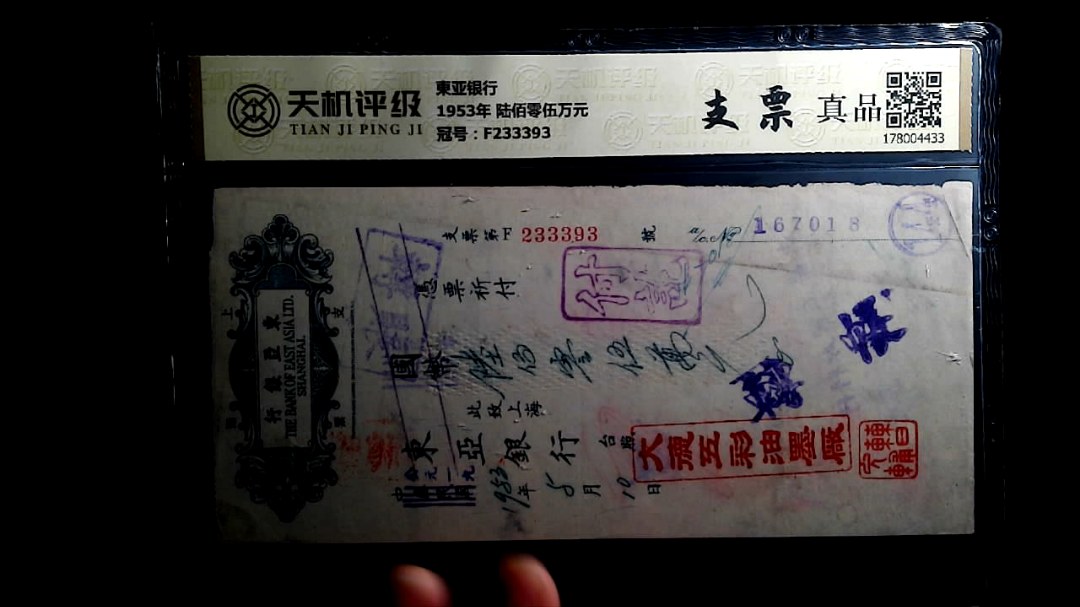 天机评级
TIAN JI PING JI
東亚银行
1953年 陆佰零伍万元
冠号：F233393
支票 真品
178004433
支票第 233393 號
a/c No 167018
憑票祈付
付訖
國幣 陸佰零伍萬
此致上海
東亞銀行 台照
1953年5月10日
行銀亞東
THE BANK OF EAST ASIA LTD.
SHANGHAI
上海支票
大號五彩油墨廠